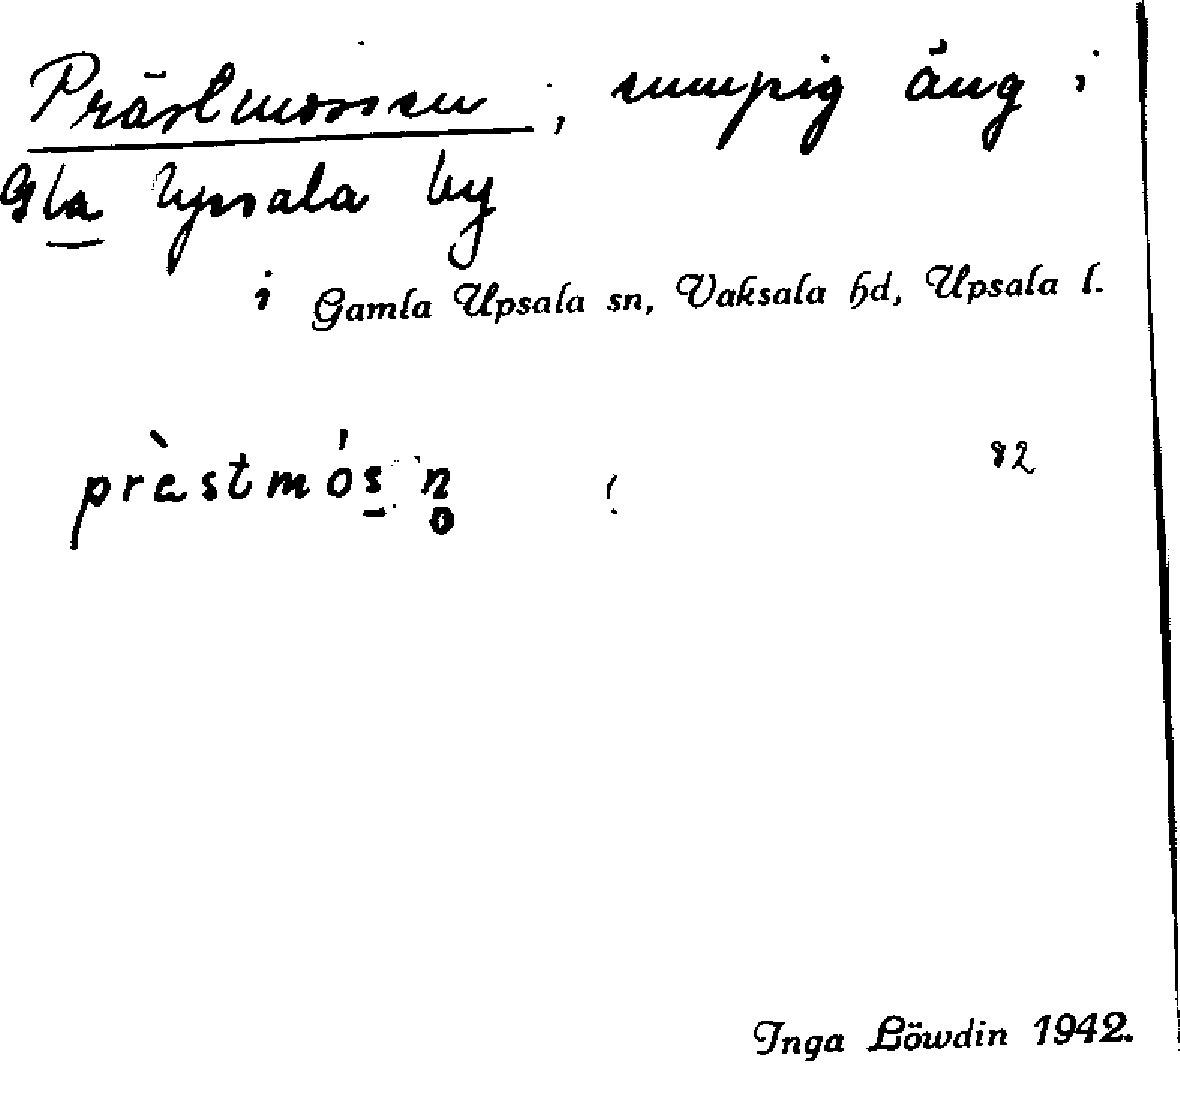 Prästmossen, sumpig äng i
Gla Upsala by
i Gamla Upsala sn, Vaksala hd, Upsala l.
prὲstmós̱ n̥
82
Inga Löwdin 1942.